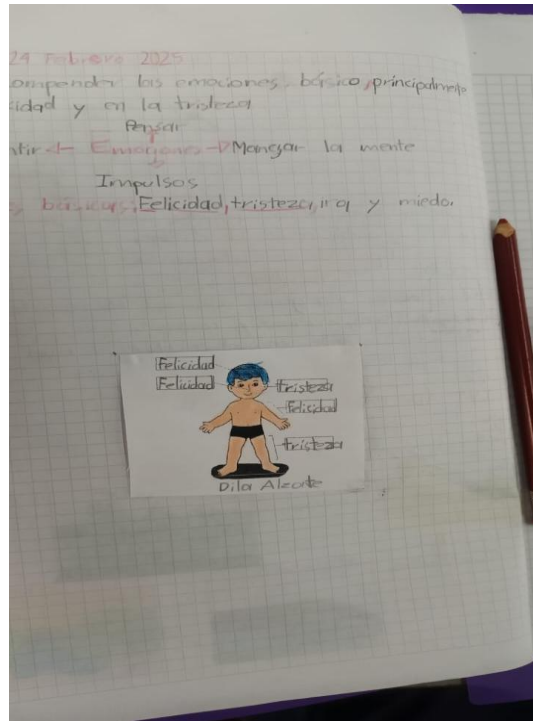 24 Febrero 2025
ompender las emociones básico, principalmente
cidad y en la tristeza
Pensar
ntir Emociones Manejar la mente
Impulsos
s básicas, Felicidad, tristeza, ira y miedo.
Felicidad
Felicidad
tristeza
Felicidad
tristeza
Alzate